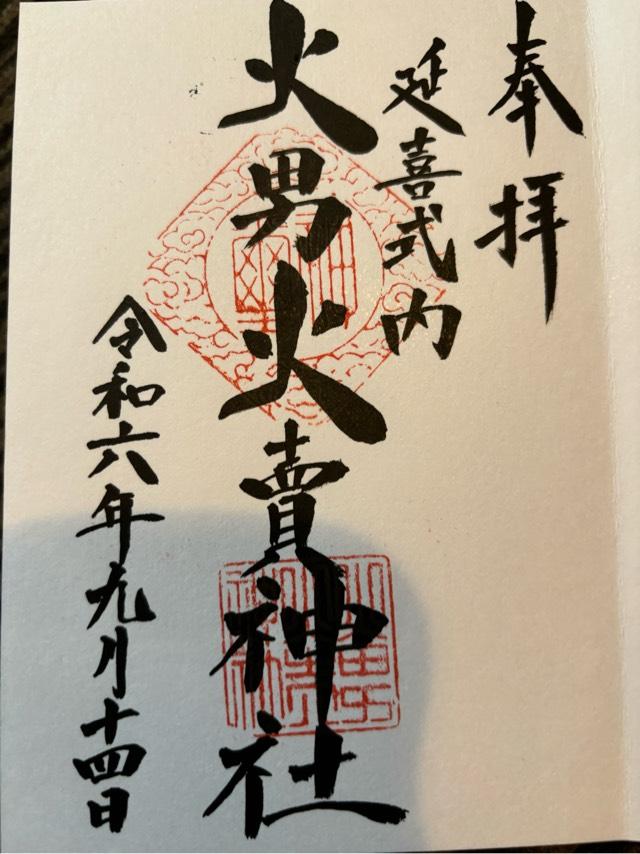 奉拝
延喜式内
火男火賣神社
令和六年九月十四日